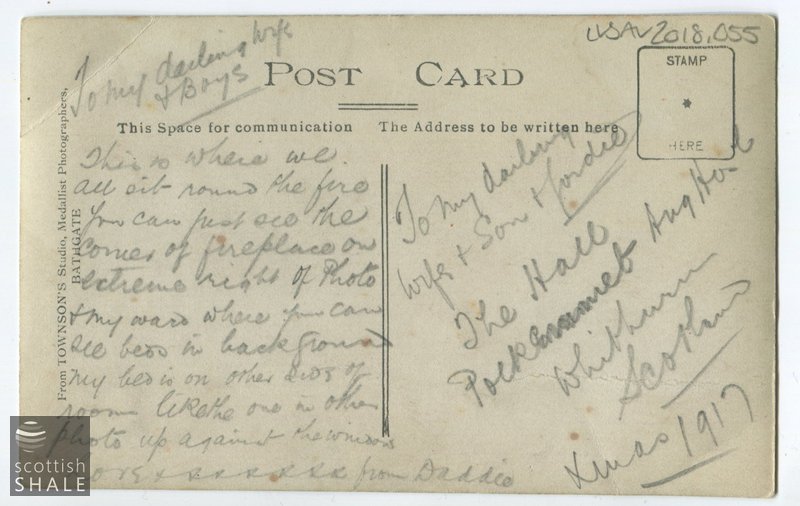 LVSAV2018.055
To My darling Wife
& Boys
POST CARD
STAMP
HERE
This Space for communication
The Address to be written here
From TOWNSON'S Studio, Medallist Photographers,
BATHGATE
This is where we
all sit round the fire
You can just see the
corner of fireplace on
extreme right of Photo
& My ward where you can
see beds in background
My bed is on other side of
room like the one in other
photo up against the windows
x x x x x x x from Daddie
To My darling
Wife & Son & Geordie
The Hall
Polkemmet Aux Hosl
Whitburn
Scotland
Xmas 1917
scottish
SHALE